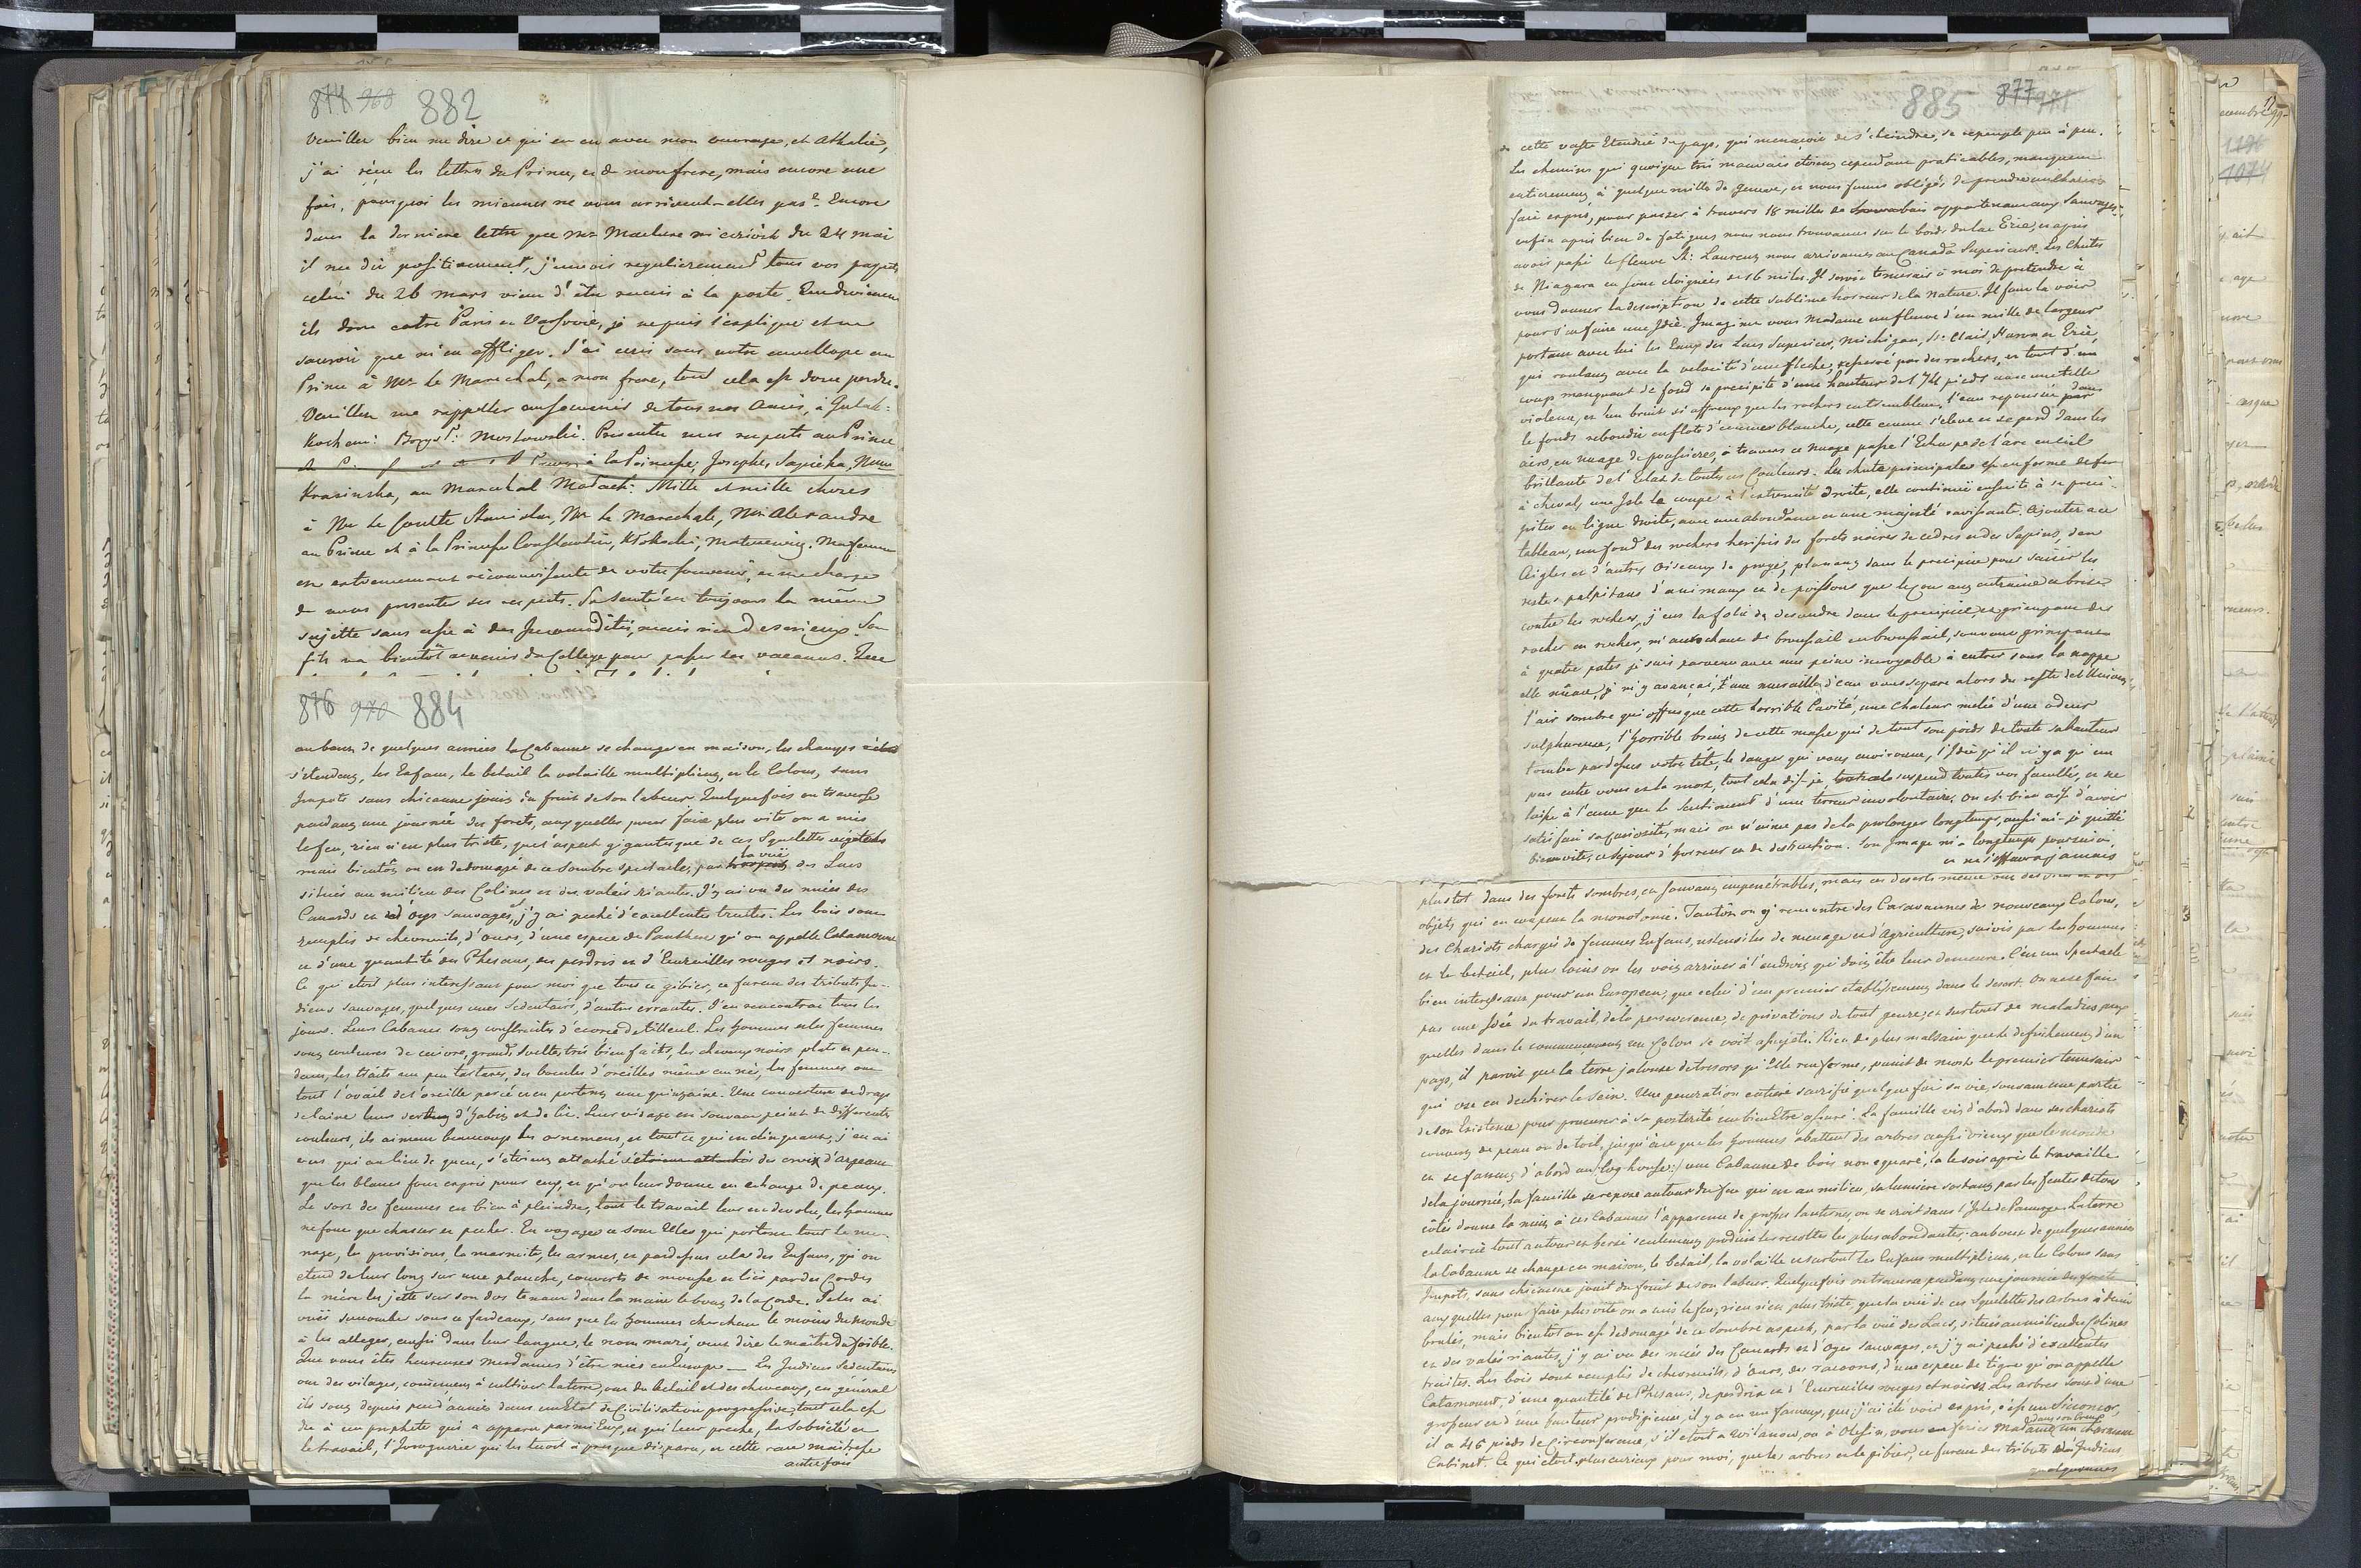 874 968 882
Veuillez bien me dire ce qui en en avec mon ouvrage, et Athalie,
j'ai réçu les lettres du Prince, et de mon frere, mais encore une
fois, pourquoi les miennes ne vous arrivent-elles pas? Encore
dans la derniere lettre que Mr Maclure m'écrivit du 24 mai
il me dit positivement, j'envois regulierement tous vos paquets
celui du 26 mars vient d'être remis à la poste.
ils donc entre Paris et Varsovie, je ne puis l'expliquer et ne
saurois que m'en affliger. J'ai ecris sous votre enveloppe au
Prince à Mr le Marechal, a mon frere, tout cela est donc perdu.
Veuillez me rappeller au souvenir de tous nos Amis, à Gutak:
Kochan: Mostowski. Presentez mes respects au Prince
à la Princesse, Josephe, Sapieha, Mme
Krasinska, au Marechal Malach: Mille et mille choses
à Mr le Comte Stanislas, Mr le Marechale, Mr Alexandre
au Prince et à la Princesse Constantin, Matuzewic. Ma femme
est extremement réconnoissante de votre souvenir, et me charge
de vous presenter ses respects. Sa santé est toujours la même
sujette sans cesse à des Incomodités, mais rien de serieux. Son
fils va bientôt revenir du College pour passer les vacances.
876 970 884
au bout de quelques années la Cabanne se change en maison, les champs
s'etendent, les Enfans, le betail la volaille multiplient, et le Colons, sans
Impots sans chicanne jouit du fruit de son labeur. Quelquefois on traverse
pendant une journée des forets, auxquelles pour faire plus vite on a mis
le feu, rien n'est plus triste, que l'aspect gigantesque de ces Squelettes végétales
mais bientôt on est dedomagé de ce Sombre spectacle, par la vuë des Lacs
situés au milieu des Colines et des valées riantes. J'y ai vu des nuées des
Canards et d'oyes sauvages, et j'y ai peché d'excellentes truites. Les bois sont
remplis de chevreuils, d'ours, d'une espece de Panthere qu'on appelle Catamount
et d'une quantité des Phesans, des perdrix et d'Ecureuilles rouges et noirs.
Ce qui etoit plus interessant pour moi que tout ce gibier, ce furent des tributs In-
diens sauvages, quelques unes Sedentaires, d'autres errantes. J'en rencontrai tous les
jours. Leurs Cabanes sont construites d'écorce de tilleul. Les hommes et les femmes
sont couleures de cuivre, grands, sveltes, très bien faits, les cheveux noirs plats et pen-
dans, les traits un peu tartares, des boucles d'oreilles même au néz, les femmes ont
tout l'ovail de l'oreille percé et en portent une quinzaine. Une couverture de drap
de laine leurs sert d'habits et de lit. Leur visage est souvent peint de differentes
couleurs, ils aiment beaucoup les ornemens, et tout ce qui est clinquant, j'en ai
vus qui au lieu de queue, s'étoient attaché s'étoient attachés des croix d'argent
que les blancs font exprès pour eux, et qu'on leur donne en echange de peaux.
Le sort des femmes est bien à pleindre, tout le travail leur est devolu, les hommes
ne font que chasser et pecher. En voyages ce sont Elles qui portent tout le me-
nage, les provisions, la marmite, les armes, et pardessus cela des Enfans, qu'on
etend de leur long sur une planche, couverts de mousse et liés par des Cordes
la mère les jette sur son dos tenant dans la main le bout de la Corde. Je les ai
vuës succomber sous ce fardeaux, sans que les hommes cherchent le moins du monde
à les alleger, aussi dans leur langue, le nom mari, veut dire le maître du foible.
Que vous êtes heureuses Mesdames d'être nées en Europe — Les Indiens Sedentaires
ont des vilages, comencent à cultiver la terre, ont du betail et des cheveaux, en général
ils sont depuis peu d'année dans un Etat de Civilisation progressive, tout cela est
dû à un prophete qui a apparu parmi Eux, et qui leur preche, la Sobrieté et
le travail, l'Ivrognerie qui les tuoit a presque disparu, et cette race maitresse
autrefois
885 877 971
de cette vaste Etendue de pays, qui menaçoit de s'éteindre, se repeuple peu à peu.
Les chemins qui quoique très mauvais étoient cependant praticables, manquent
entierement à quelque mille de Genesee, et nous fumes obligés de prendre un Chariot
fait exprès, pour passer à travers 18 milles de bois appartenant aux Sauvages,
enfin après bien de fatigues nous nous trouvames sur le bords du lac Erié, et après
avoir passé le fleuve St: Laurent nous arrivames au Canada Superieur. Les Chutes
de Niagara en sont éloignées de 16 miles. Il seroit temeraire à moi de pretendre à
vous donner la description de cette sublime horreur de la Nature. Il faut la voir
pour s'en faire une Idée. Imaginez vous Madame un fleuve d'un mille de largeur
portant avec lui les Eaux des Lacs Superieur, Michigan, St: Clair, Huron et Erié,
qui roulant avec la velocité d'une fleche, resserré par des rochers, et tout d'un
coup manquant de fond se precipite d'une hauteur de 174 pieds avec une telle
violence, et un bruit si affreux que les rochers en tremblent, l'eau repoussée dans par
le fonds rebondit en flots d'ecumes blanche, cette ecume s'éleve et se perd dans les
airs, en nuage de poussieres, à travers ce nuage passe l'Echarpe de l'arc en ciel
brillante de l'Eclat de toutes ces Couleurs. La chute principale est en forme de fer
à cheval, une Isle la coupe à l'extremité droite, elle continuë ensuite à se preci-
piter en ligne droite, avec une abondance et une majesté ravissante. Ajoutez à ce
tableau, un fond des rochers herissés des forets noires de cedres et des Sapins, des
Aigles et d'autres Oiseaux de proye, planant dans le precipice pour saisir les
restes palpitans d'animaux et de poissons que le courant entraine et brise
contre les rochers, j'eus la folie de descendre dans le precipice, et grimpant de
rocher en rocher, m'accrochant de brousail en broussail, souvent grimpant
à quatre pates je suis parvenu avec une peine incroyable à entrer sous la nappe
elle même, je m'y avançai, une muraille d'eau vous separe alors du reste de l'Univers,
l'air sombre qui offusque cette horrible Cavité, une Chaleur melée d'une odeur
sulphureuse, l'horrible bruit de cette masse qui de tout son poids de toute sa hauteur
tombe pardessus votre tête, le danger qui vous environne, l'Idée qu'il n'y a qu'un
pas entre vous et la mort, tout cela dis-je suspend toutes vos facultés, et ne
laisse à l'ame que le Sentiment d'une terreur involontaire. On est bien aise d'avoir
satisfait sa curiosité, mais on n'aime pas de la prolonger longtemps, aussi ai-je quitté
bien vite, ce sejour d'horreur et de destruction. Son Image m'a longtemps poursuivi,
et ne s'effacera jamais
plustot dans des forets sombres, et souvent impenétrables, mais ces deserts meme ont des
objets qui en coupent la monotonie. Tantôt on y rencontre des Caravannes de nouveaux Colons,
des Chariots chargés de femmes Enfans, ustensiles de menage et d'Agriculture, suivis par les hommes
et le betail, plus loins on les voit arriver à l'endroit qui doit être leur demeure. C'est un Spectacle
bien interessant pour un Européen, que celui d'un premier etablissement dans le desert. On ne se fait
pas une Idée du travail, de la perseverence, de privations de tout genre, et surtout de maladies aux
quelles dans le commencement un Colon se voit assujeti. Rien de plus malsain que le defrichement d'un
pays, il paroit que la terre jalouse de tresors qu'Elle renferme, punit de mort le premier temeraire
qui ose en dechirer le Sein. Une generation entiere sacrifie quelque fois sa vie, souvent une partie
de son Existence pour procurer à sa posterité un bien Etre assuré. La famille vit d'abord dans ses chariots
couverts de peau ou de toil, jusqu'à ce que les hommes abattent des arbres aussi vieux que le monde
et se fassent d'abord un /:log house:/ une Cabanne de bois non equaré, là le soir après le travaille
de la journée, la famille se repose autour du feu qui est au milieu, sa lumiere sortant par les fentes de tous
côtés donne la nuit, à ces Cabannes l'apparence de grosses lanternes, on se croit dans l'Isle de Panurge. La terre
eclaircie tout autour et hersé seulement, produit les recoltes les plus abondantes. au bout de quelques années
la Cabanne se change en maison, le betail, la volaille et surtout les Enfans multiplient, et le Colons sans
Impots, sans chicanne jouit du fruit de son labeur. Quelquefois on traverse pendant une journée des forets
auxquelles pour faire plus vite on a mis le feu, rien n'est plus triste, que la vuë de ces Squelettes des arbres à demi
brulés, mais bientot on est dedomagé de ce Sombre aspect, par la vuë des Lacs, situés au milieu des Colines
et des valés riantes, j'y ai vu des nuées des Canards et d'Oyes sauvages, et j'y ai peché d'excellentes
truites. Les bois sont remplis de chevreuils, d'Ours, des racoons, d'une espece de tigre qu'on appelle
Catamount, d'une quantité de Phesans, de perdrix et d'Ecureuiles rouges et noirs. Les arbres sont d'une
grosseur et d'une hauteur prodigieuse, il y a en un fameux, que j'ai été voir exprès, c'est un Sicomor,
il a 46 pieds de Circonference, s'il etoit a Wilanow, ou à Olesin, vous en feriez Madame dans son creux un charmant
Cabinet. Ce qui etoit plus curieux pour moi, que les arbres et le gibier, ce furent des tributs des Indiens
quelquesunes